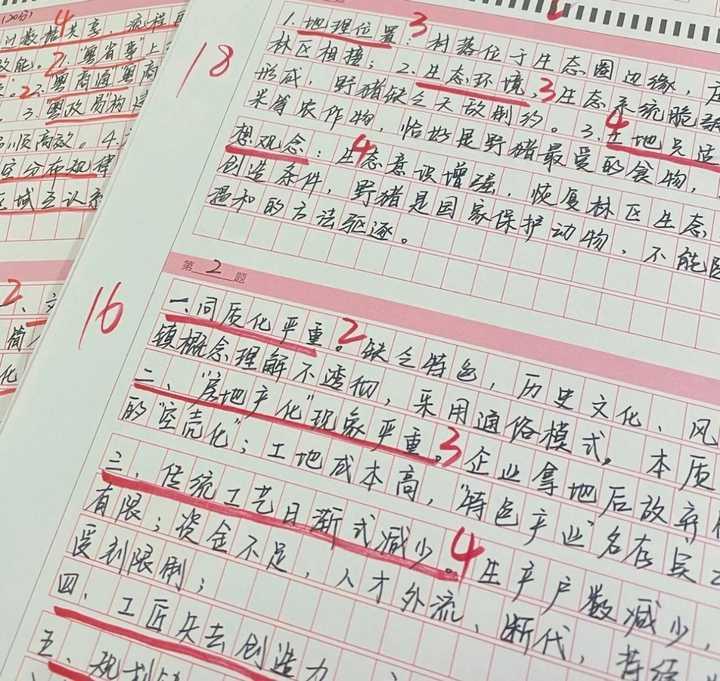 (20分)
计数据共享,流程
4
效能。2.“粤省事”上
2.“粤商通”粤商
3.“粤政易”构建
顺高效。4.
区域互认
2
18
1.地理位置:3村落位于生态圈边缘,
林区相接;2.生态环境:3生态系统脆弱
形成,野猪缺乏天敌制约。3.土地
4
米等农作物,恰好是野猪最爱的食物,
想观念:4生态意识增强,恢复林区生态
创造条件,野猪是国家保护动物,不能
温和的方法驱逐。
第 2 题
16
一、同质化严重。2缺乏特色,历史文化、风
镇概念理解不透彻,采用通俗模式。本质
二、“房地产化”现象严重。3企业拿地后放弃
的“空壳化”;土地成本高,“特色产业”名存实
三、传统工艺日渐式减少。4生产户数减少,
有限;资金不足,人才外流、断代,
受到限制;
四、工匠失去创造力
五、规划